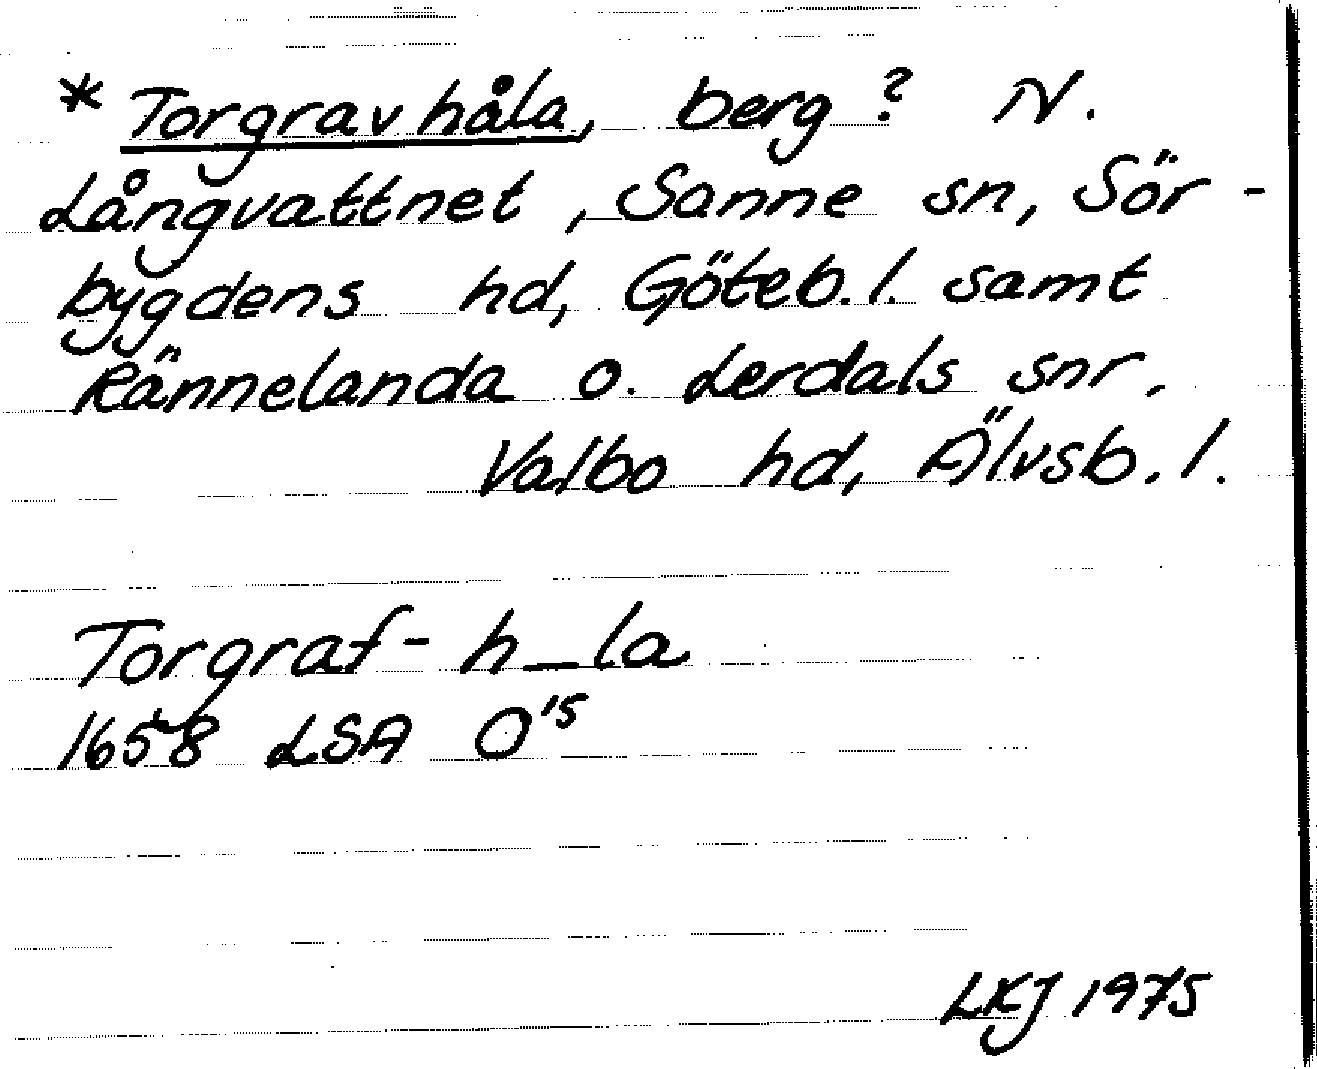 * Torgravhåla, berg? N.
Långvattnet, Sanne sn, Sör-
bygdens hd, Göteb. l. samt
Rännelanda o. Lerdals snr,
Valbo hd, Älvsb. l.
Torgraf- h_la
1658 LSA O'5
LKJ 1975